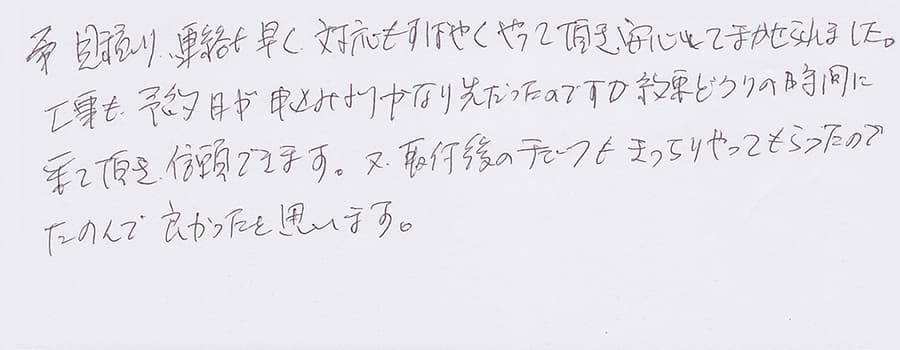 見積り、連絡も早く対応もすばやくやって頂き安心してまかせられました。
工事も、予約日が申込みよりかなり先だったのですが約束どうりの時間に
来て頂き、信頼できます。又、取付後の もきっちりやってもらったので
たのんで良かったと思います。